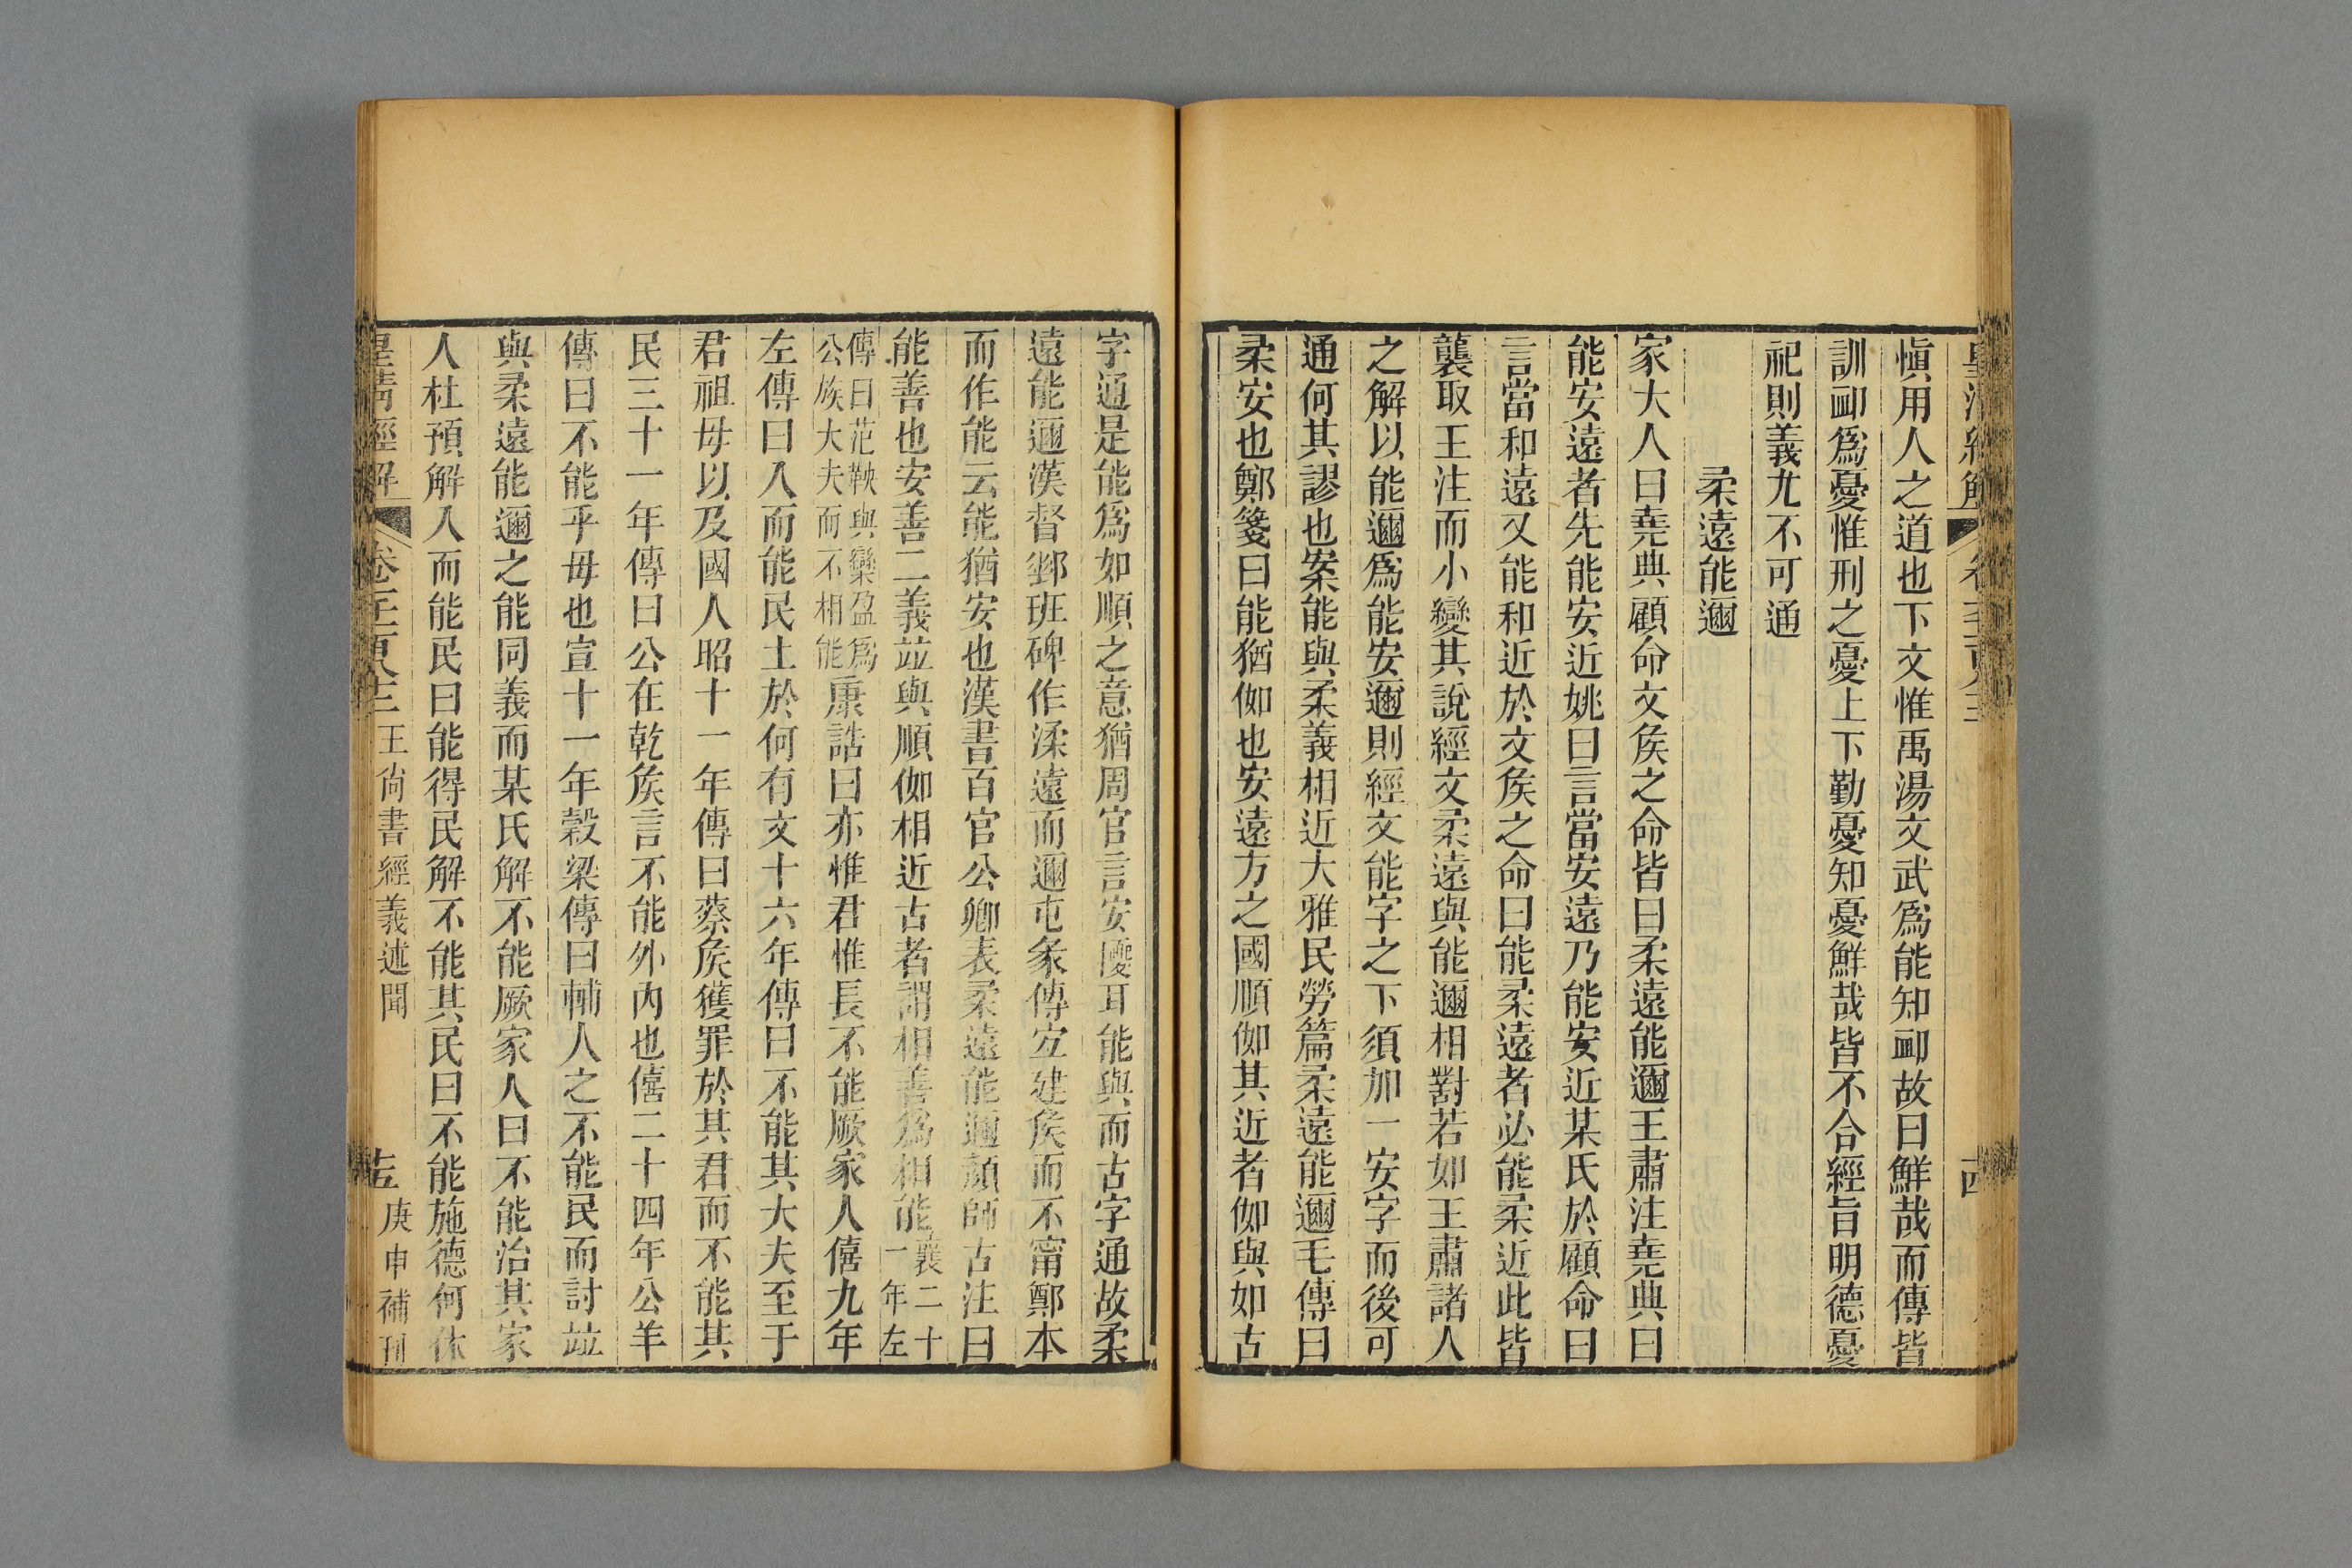 慎用人之道也下文惟禹湯文武爲能知卹故曰鮮哉而傳皆
訓卹爲憂惟刑之憂上下勤憂知憂鮮哉皆不合經旨明德憂
祀則義尤不可通
柔遠能邇
家大人曰堯典顧命文矦之命皆曰柔遠能邇王肅注堯典曰
能安遠者先能安近姚曰言當安遠乃能安近某氏於顧命曰
言當和遠又能和近於文矦之命曰能柔遠者必能柔近此皆
襲取王注而小變其說經文柔遠與能邇相對若如王肅諸人
之解以能邇爲能安邇則經文能字之下須加一安字而後可
通何其謬也案能與柔義相近大雅民勞篇柔遠能邇毛傳曰
柔安也鄭箋曰能猶伽也安遠方之國順伽其近者伽與如古
字通是能爲如順之意猶周官言安擾耳能與而古字通故柔
遠能邇漢督郵班碑作渘遠而邇屯彖傳宐建矦而不甯鄭本
而作能云能猶安也漢書百官公卿表柔遠能邇顔師古注曰
能善也安善二義竝與順伽相近古者謂相善爲相能襄二十一年左
傳曰范鞅與欒盈爲公族大夫而不相能康誥曰亦惟君惟長不能厥家人僖九年
左傳曰入而能民土於何有文十六年傳曰不能其大夫至于
君祖母以及國人昭十一年傳曰蔡矦獲罪於其君而不能其
民三十一年傳曰公在乾矦言不能外內也僖二十四年公羊
傳曰不能乎母也宣十一年穀梁傳曰輔人之不能民而討竝
與柔遠能邇之能同義而某氏解不能厥家人曰不能治其家
人杜預解入而能民曰能得民解不能其民曰不能施德何休
皇清經解 卷 王尙書經義述聞 庚申補刊